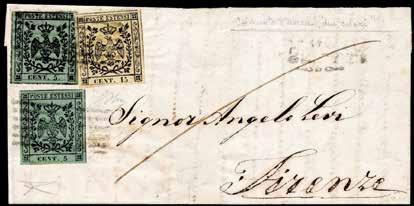 POSTE ESTENSI
CENT. 5.
POSTE ESTENSI
CENT. 15
POSTE ESTENSI
CENT. 5
Signor Angelo Levi
Firenze